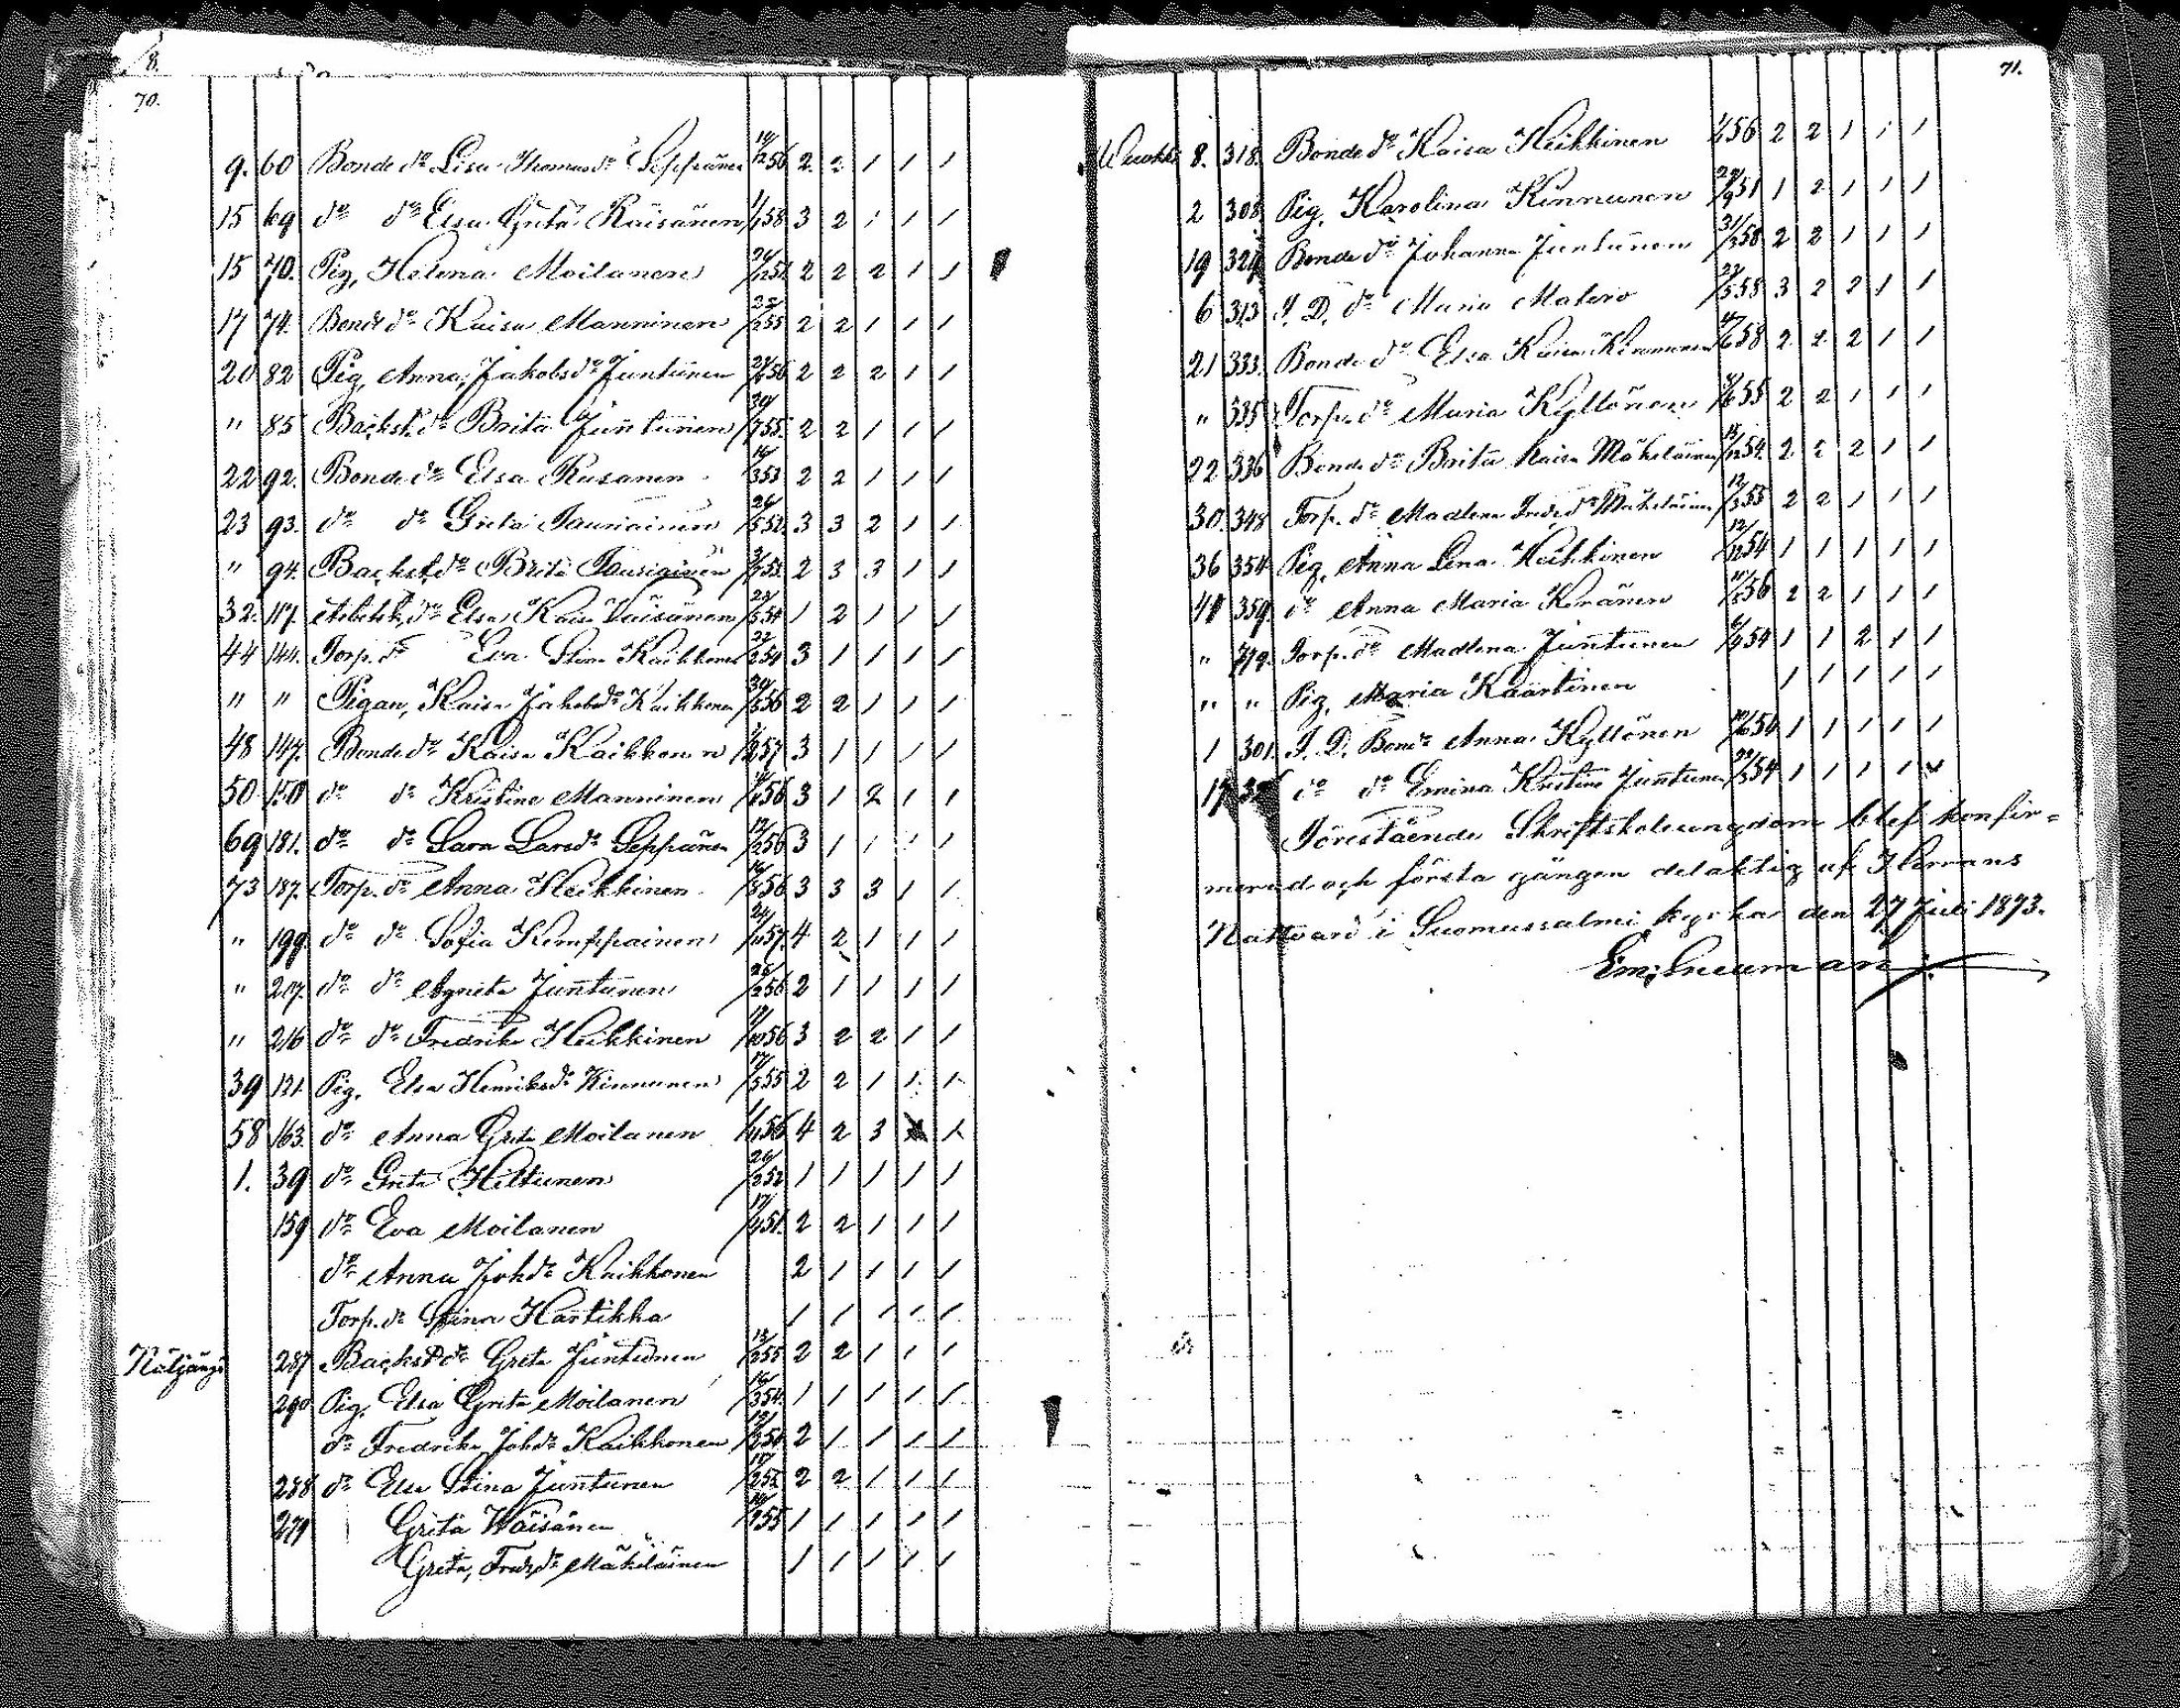 70.
9. 60 Bonde dr Lisa Thomasdr Seppänen 14/12 56 2 2 1 1 1
15 69 do dr Elsa Greta Räisänen 1/1 58 3 2 1 1 1
15 70. Pig, Helena Moilanen 2 2 2 1 1
17 74. Bonde dr Kaisa Manninen 2 2 1 1 1
20 82 Pig, Anna Jakobsdr Juntunen 56 2 2 2 1 1
" 85 Backst. dr Brita Juntunen 55 2 2 1 1 1
22 92. Bonde dr Elsa Kusanen 16/3 53 2 2 1 1 1
23 93. do dr Greta Tauriainen 26/5 52 3 3 2 1 1
" 94. Backst. dr Brita Tauriainen 53 2 3 3 1 1
32. 117. dr Elsa Kaisa Väisänen 54 1 2 1 1 1
44 144. Torp. dr Eva Stina Kaikkonen 22/2 54 3 1 1 1 1
" " Pigan, Kaisa Jakobsdr Kaikkonen 30/5 56 2 2 1 1 1
48 147. Bonde dr Kaisa Kaikkonen 57 3 1 1 1 1
50 150 do dr Kristina Manninen 56 3 1 2 1 1
69 181. do dr Sara Larsdr Seppänen 12/2 56 3 1 1 1 1
73 187. Torp. dr Anna Heikkinen 56 3 3 3 1 1
" 199. do dr Sofia Kemppainen 57 4 2 1 1 1
" 207. do dr Agneta Juntunen 25/2 56 2 1 1 1 1
" 216 do dr Fredrika Heikkinen 56 3 2 2 1 1
39 121. Pig. Elsa Henriksdr Kinnunen 17/5 55 2 2 1 1 1
58 163. do Anna Greta Moilanen 56 4 2 3 1
1. 39 do Greta Heltunen 26/2 52 1 1 1 1 1
159 do Eva Moilanen 17/4 51. 2 2 1 1 1
do Anna Johdr Kaikkonen 2 1 1 1 1
Torp. dr Stina Hartikka 1 1 1 1 1
Näljänge 287 Backst dr Greta Juntunen 13/2 55 2 2 1 1 1
290 Pig. Elsa Greta Moilanen 16/3 54. 1 1 1 1 1
do Fredrika Johdr Kaikkonen 2 1 1 1 1
288 do Elsa Stina Juntunen 2 2 1 1 1
279 Greta Wäisänen 55 1 1 1 1 1
Greta, Fredr dr Mäkeläinen 1 1 1 1 1
71.
Wuokki 8. 318. Bonde dr Kaisa Heikkinen 56 2 2 1 1 1
2 308 Pig. Karolina Kinnunen 29/9 51 1 2 1 1 1
19 329 Bonde dr Johanna Juntunen 31/3 58 2 2 1 1 1
6 313 I. D. dr Maria Matero 22/5 58 3 2 2 1 1
21 333. Bonde dr Elsa Kaisa Kinnunen 58 2 2 2 1 1
" 335 Torp. dr Maria Kyllönen 55 2 2 1 1 1
22 336 Bonde dr Brita Kaisa Mäkeläinen 15/12 54. 2 2 2 1 1
30. 348 Torp. dr Madlena Mäkeläinen 12/3 55 2 2 1 1 1
36 354 Pig. Anna Lena Heikkinen 12/12 54 1 1 1 1 1
41 359. do Anna Maria Keränen 56 2 2 1 1 1
" 719. Torp. dr Madlena Juntunen 54 1 1 2 1 1
" " Pig. Maria Kaartinen 1 1 1 1 1
1 301. I. D. Bondr Anna Kyllönen 54 1 1 1 1 1
17 do dr Emina Kristina Juntunen 54 1 1 1 1
Förestående Skriftskoleungdom blef konfir=
merad och första gången delaktig af Herrans
Nattvard i Suomussalmi kyrka den 27 Juli 1873.
Em. Sneuman